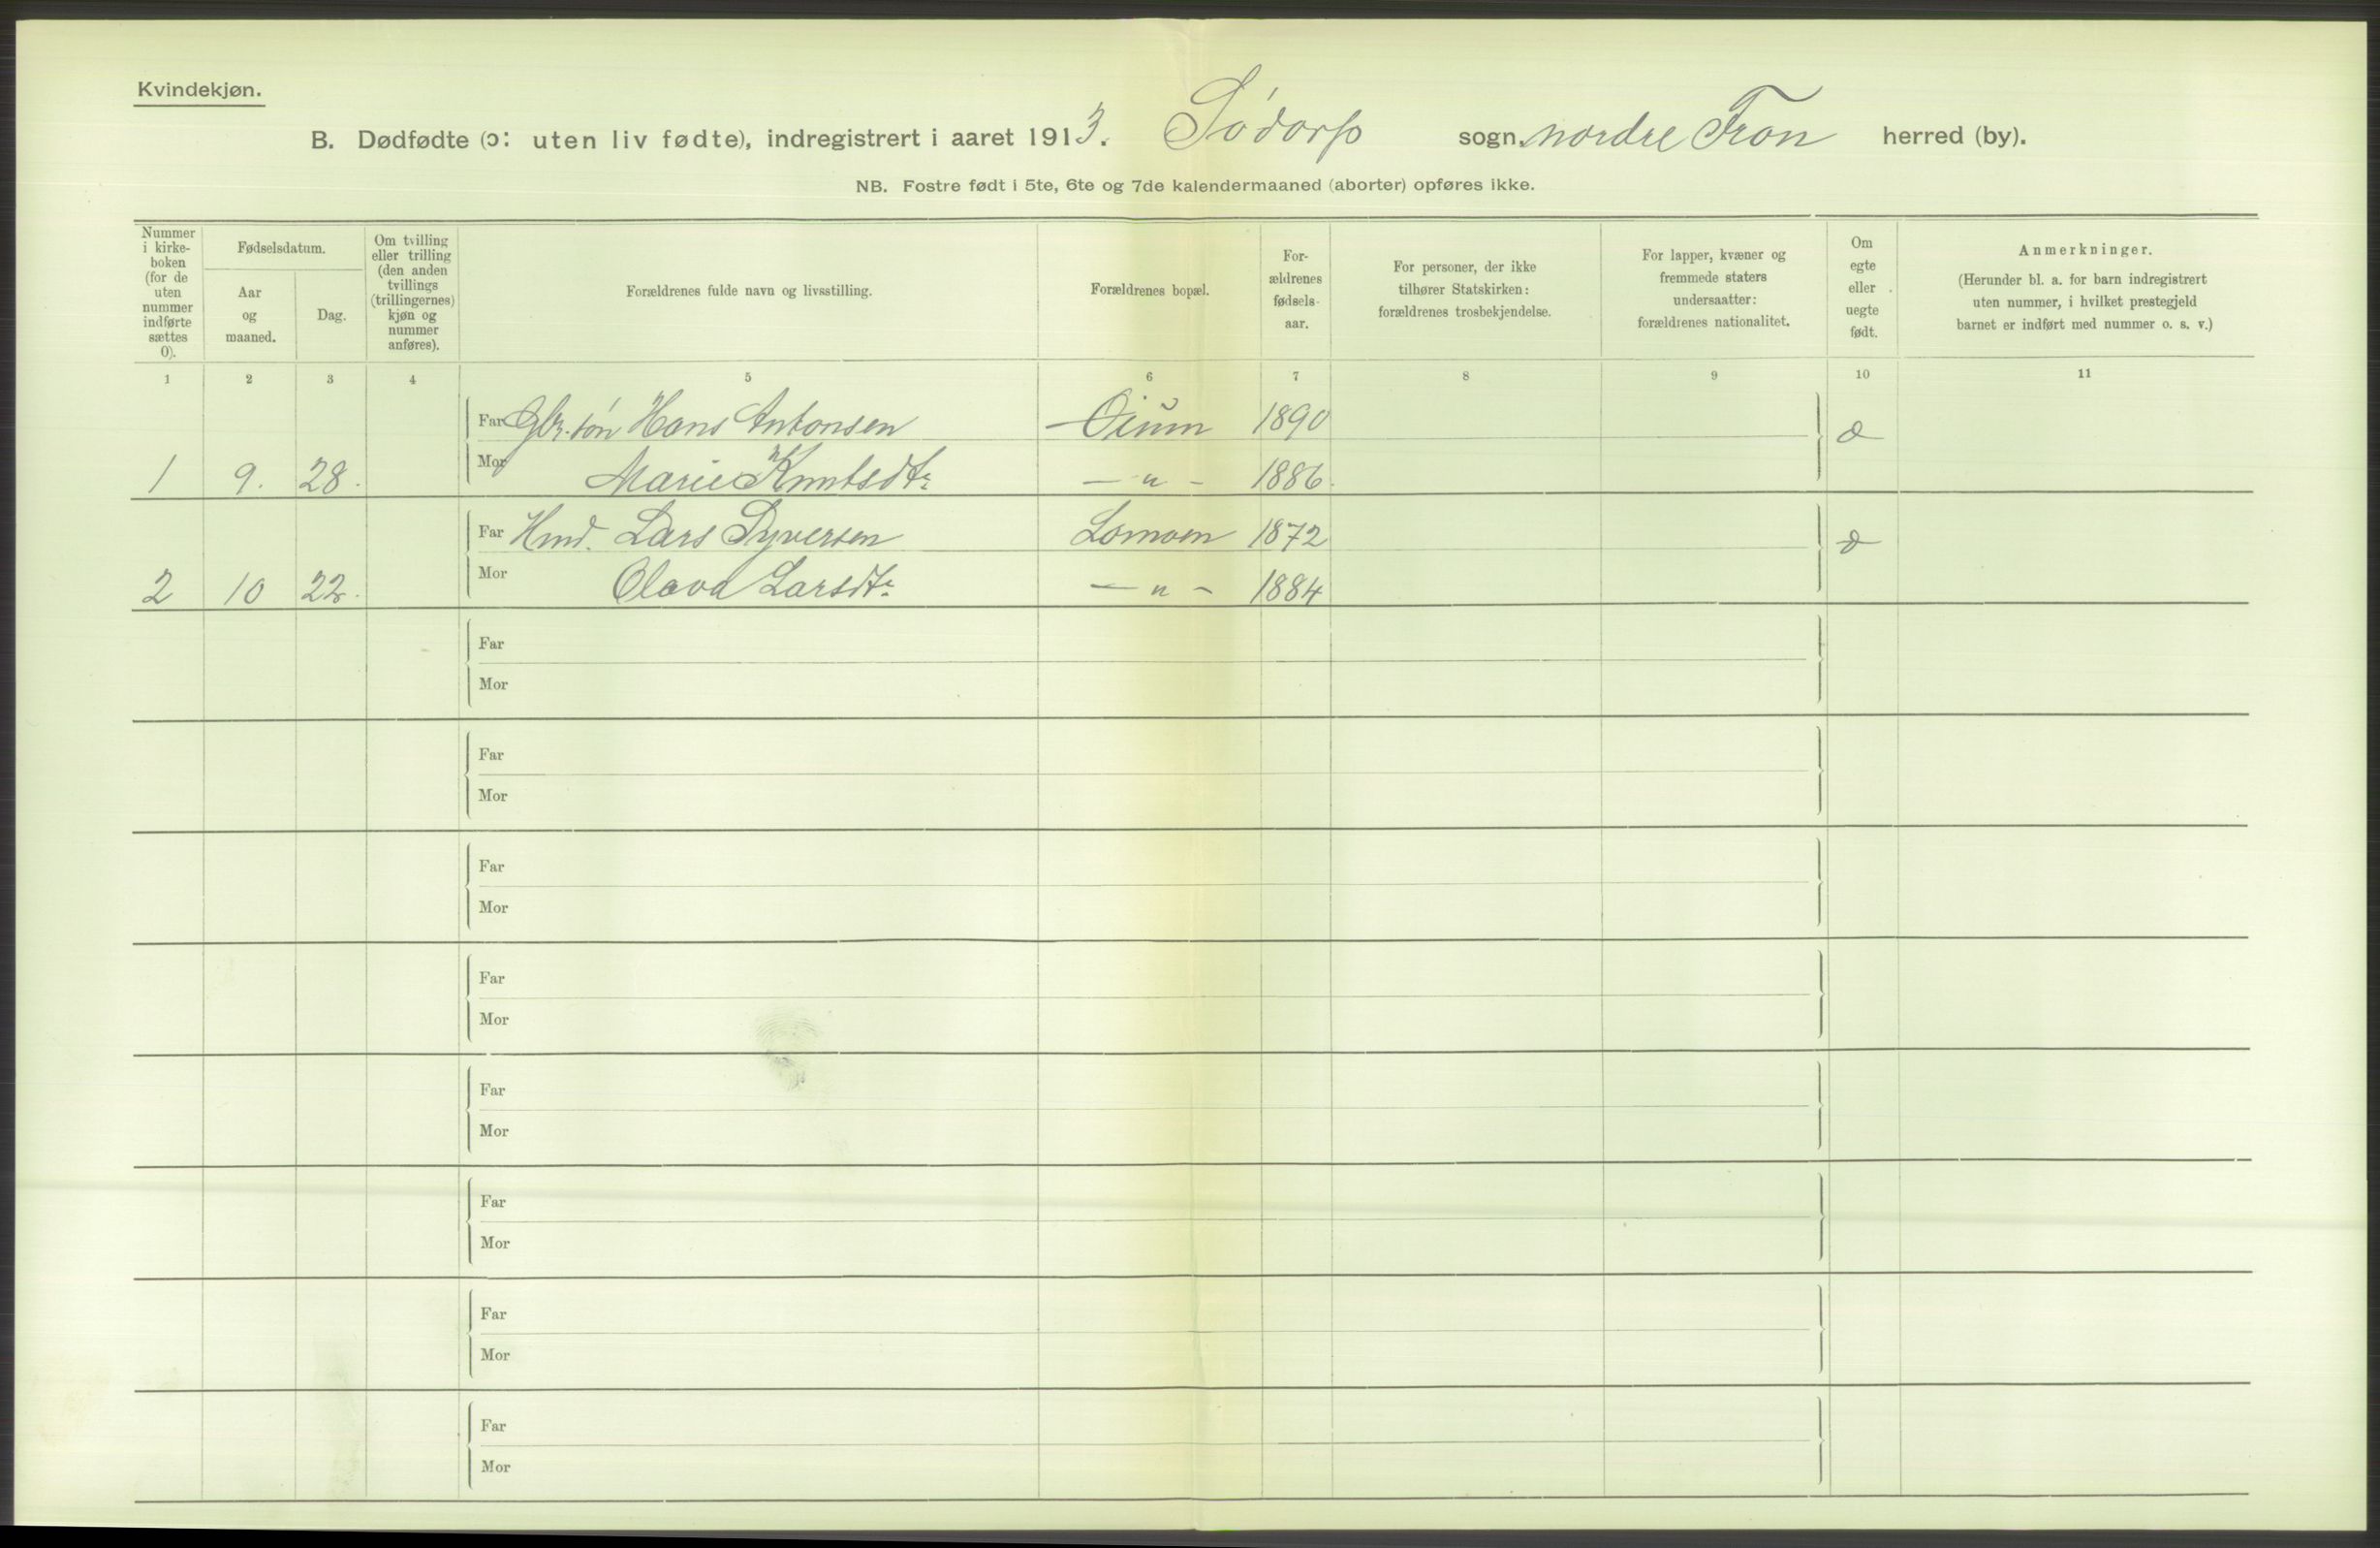 Kvindekjøn.
B. Dødfødte (ɔ: uten liv fødte), indregistrert i aaret 1913. Sødorp sogn. nordre Fron herred (by).
NB. Fostre født i 5te, 6te og 7de kalendermaaned (aborter) opføres ikke.
Nummer
i kirke-
boken
(for de
uten
nummer
indførte
sættes
0).
Fødselsdatum.
Aar
og
maaned.
Dag.
Om tvilling
eller trilling
(den anden
tvillings
(trillingernes)
kjøn og
nummer
anføres).
Forældrenes fulde navn og livsstilling.
Forældrenes bopæl.
For-
ældrenes
fødsels-
aar.
For personer, der ikke
tilhører Statskirken:
forældrenes trosbekjendelse.
For lapper, kvæner og
fremmede staters
undersaatter:
forældrenes nationalitet.
Om
egte
eller
uegte
født.
Anmerkninger.
(Herunder bl. a. for barn indregistrert
uten nummer, i hvilket prestegjeld
barnet er indført med nummer o. s. v.)
1 2 3 4 5 6 7 8 9 10 11
Far Gbr. søn Hans Antonsen Öium 1890
1 9. 28. Mor Marie Knutsdtr. — " — 1886.
Far Hmd. Lars Syversen Lomoen 1872
2 10 22. Mor Olava Larsdtr. — " — 1884
Far
Mor
Far
Mor
Far
Mor
Far
Mor
Far
Mor
Far
Mor
Far
Mor
Far
Mor